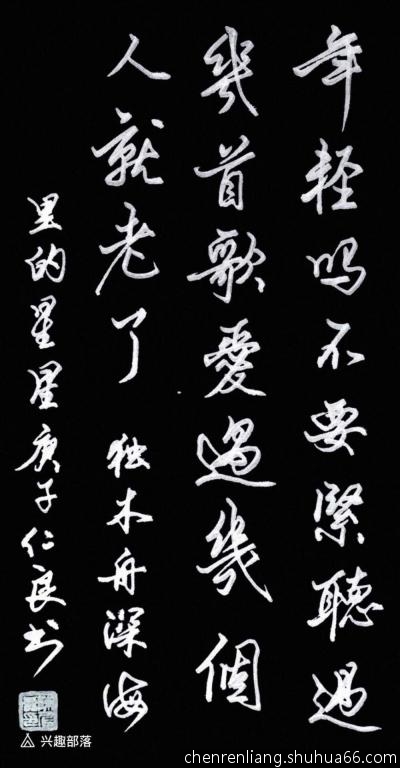 年輕嗎不要緊聽過
幾首歌愛過幾個
人就老了 独木舟深海
里的星星庚子仁良书
兴趣部落
chenrenliang.shuhua66.com